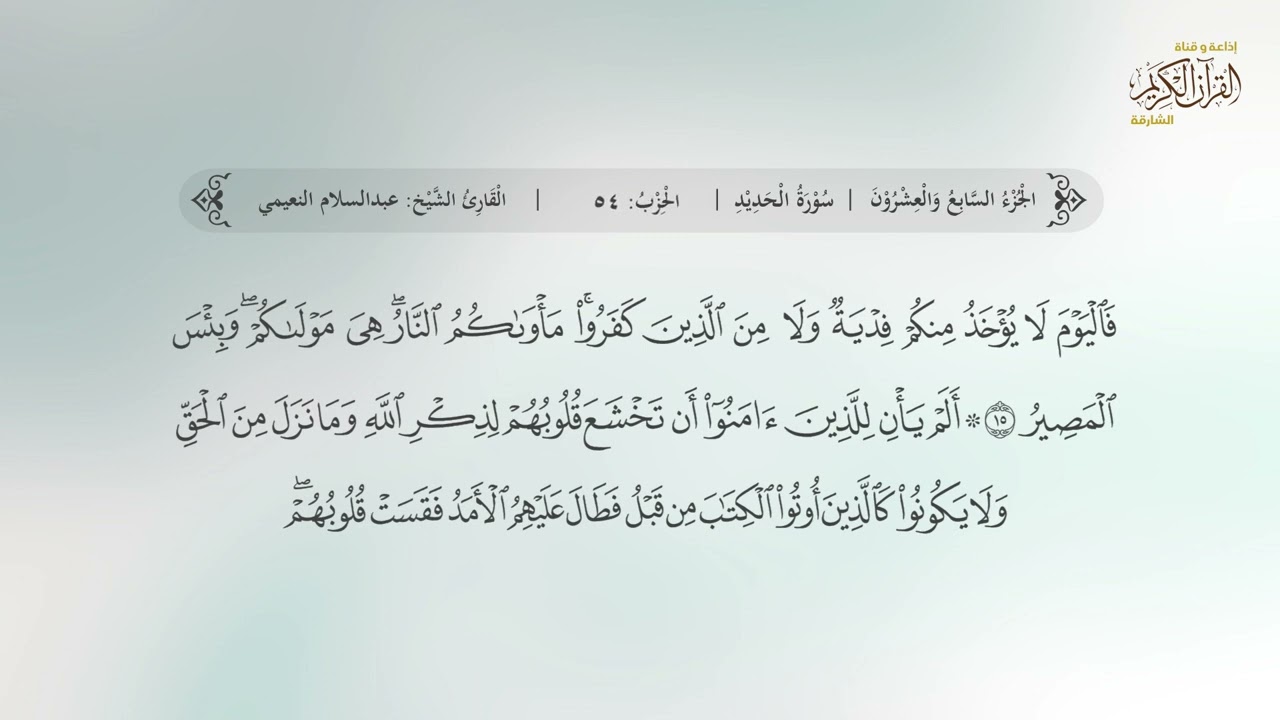 إذاعة و قناة
القرآن الكريم
الشارقة
الْجُزْءُ السَّابِعُ وَالْعِشْرُوْنَ | سُوْرَةُ الْحَدِيْدِ | الْحِزْبُ: ٥٤ | الْقَارِئُ الشَّيْخ: عبدالسلام النعيمي
فَٱلۡيَوۡمَ لَا يُؤۡخَذُ مِنكُمۡ فِدۡيَةٞ وَلَا مِنَ ٱلَّذِينَ كَفَرُواْۚ مَأۡوَىٰكُمُ ٱلنَّارُۖ هِيَ مَوۡلَىٰكُمۡۖ وَبِئۡسَ
ٱلۡمَصِيرُ ١٥ ۞ أَلَمۡ يَأۡنِ لِلَّذِينَ ءَامَنُوٓاْ أَن تَخۡشَعَ قُلُوبُهُمۡ لِذِكۡرِ ٱللَّهِ وَمَا نَزَلَ مِنَ ٱلۡحَقِّ
وَلَا يَكُونُواْ كَٱلَّذِينَ أُوتُواْ ٱلۡكِتَٰبَ مِن قَبۡلُ فَطَالَ عَلَيۡهِمُ ٱلۡأَمَدُ فَقَسَتۡ قُلُوبُهُمۡۖ